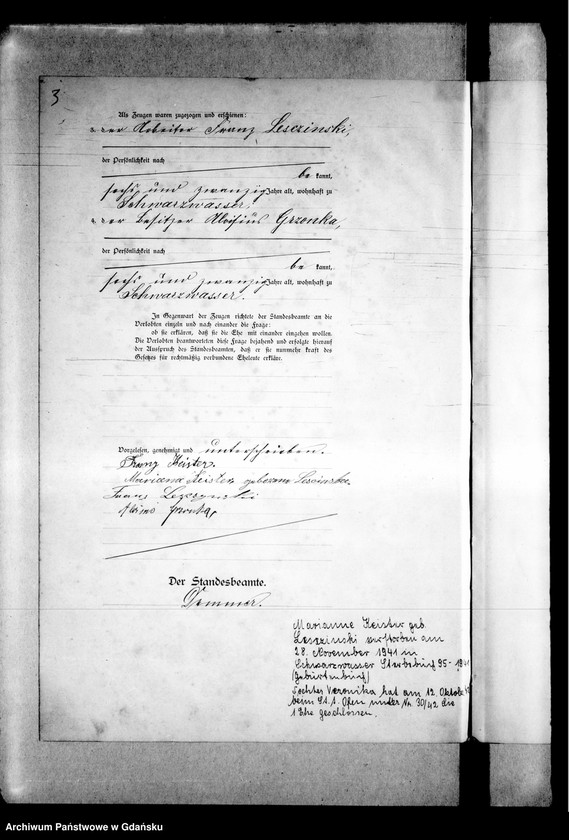 3
Als Zeugen waren zugezogen und erschienen:
der Arbeiter Franz Lesczinski,
der Persönlichkeit nach
be kannt,
sechs und zwanzig Jahre alt, wohnhaft zu
Schwarzwasser,
der Besitzer Aloisius Grzonka,
der Persönlichkeit nach
be kannt,
sechs und zwanzig Jahre alt, wohnhaft zu
Schwarzwasser.
In Gegenwart der Zeugen richtete der Standesbeamte an die
Verlobten einzeln und nach einander die Frage:
ob sie erklären, daß sie die Ehe mit einander eingehen wollen.
Die Verlobten beantworteten diese Frage bejahend und erfolgte hierauf
der Ausspruch des Standesbeamten, daß er sie nunmehr kraft des
Gesetzes für rechtmäßig verbundene Eheleute erkläre.
Vorgelesen, genehmigt und unterschrieben.
Franz Keister.
Mariana Keister geborene Lescinska.
Franz
Der Standesbeamte.
Demmer.
Marianne Keister geb
Lesczinski verstorben am
28. November 1941 in
Schwarzwasser Sterbebuch 95-1941
(Geburtenbuch)
Tochter Veronika hat am 12. Oktob
beim St. A. Ofen unter Nr. 30/42 die
1 Ehe geschlossen.
Archiwum Państwowe w Gdańsku